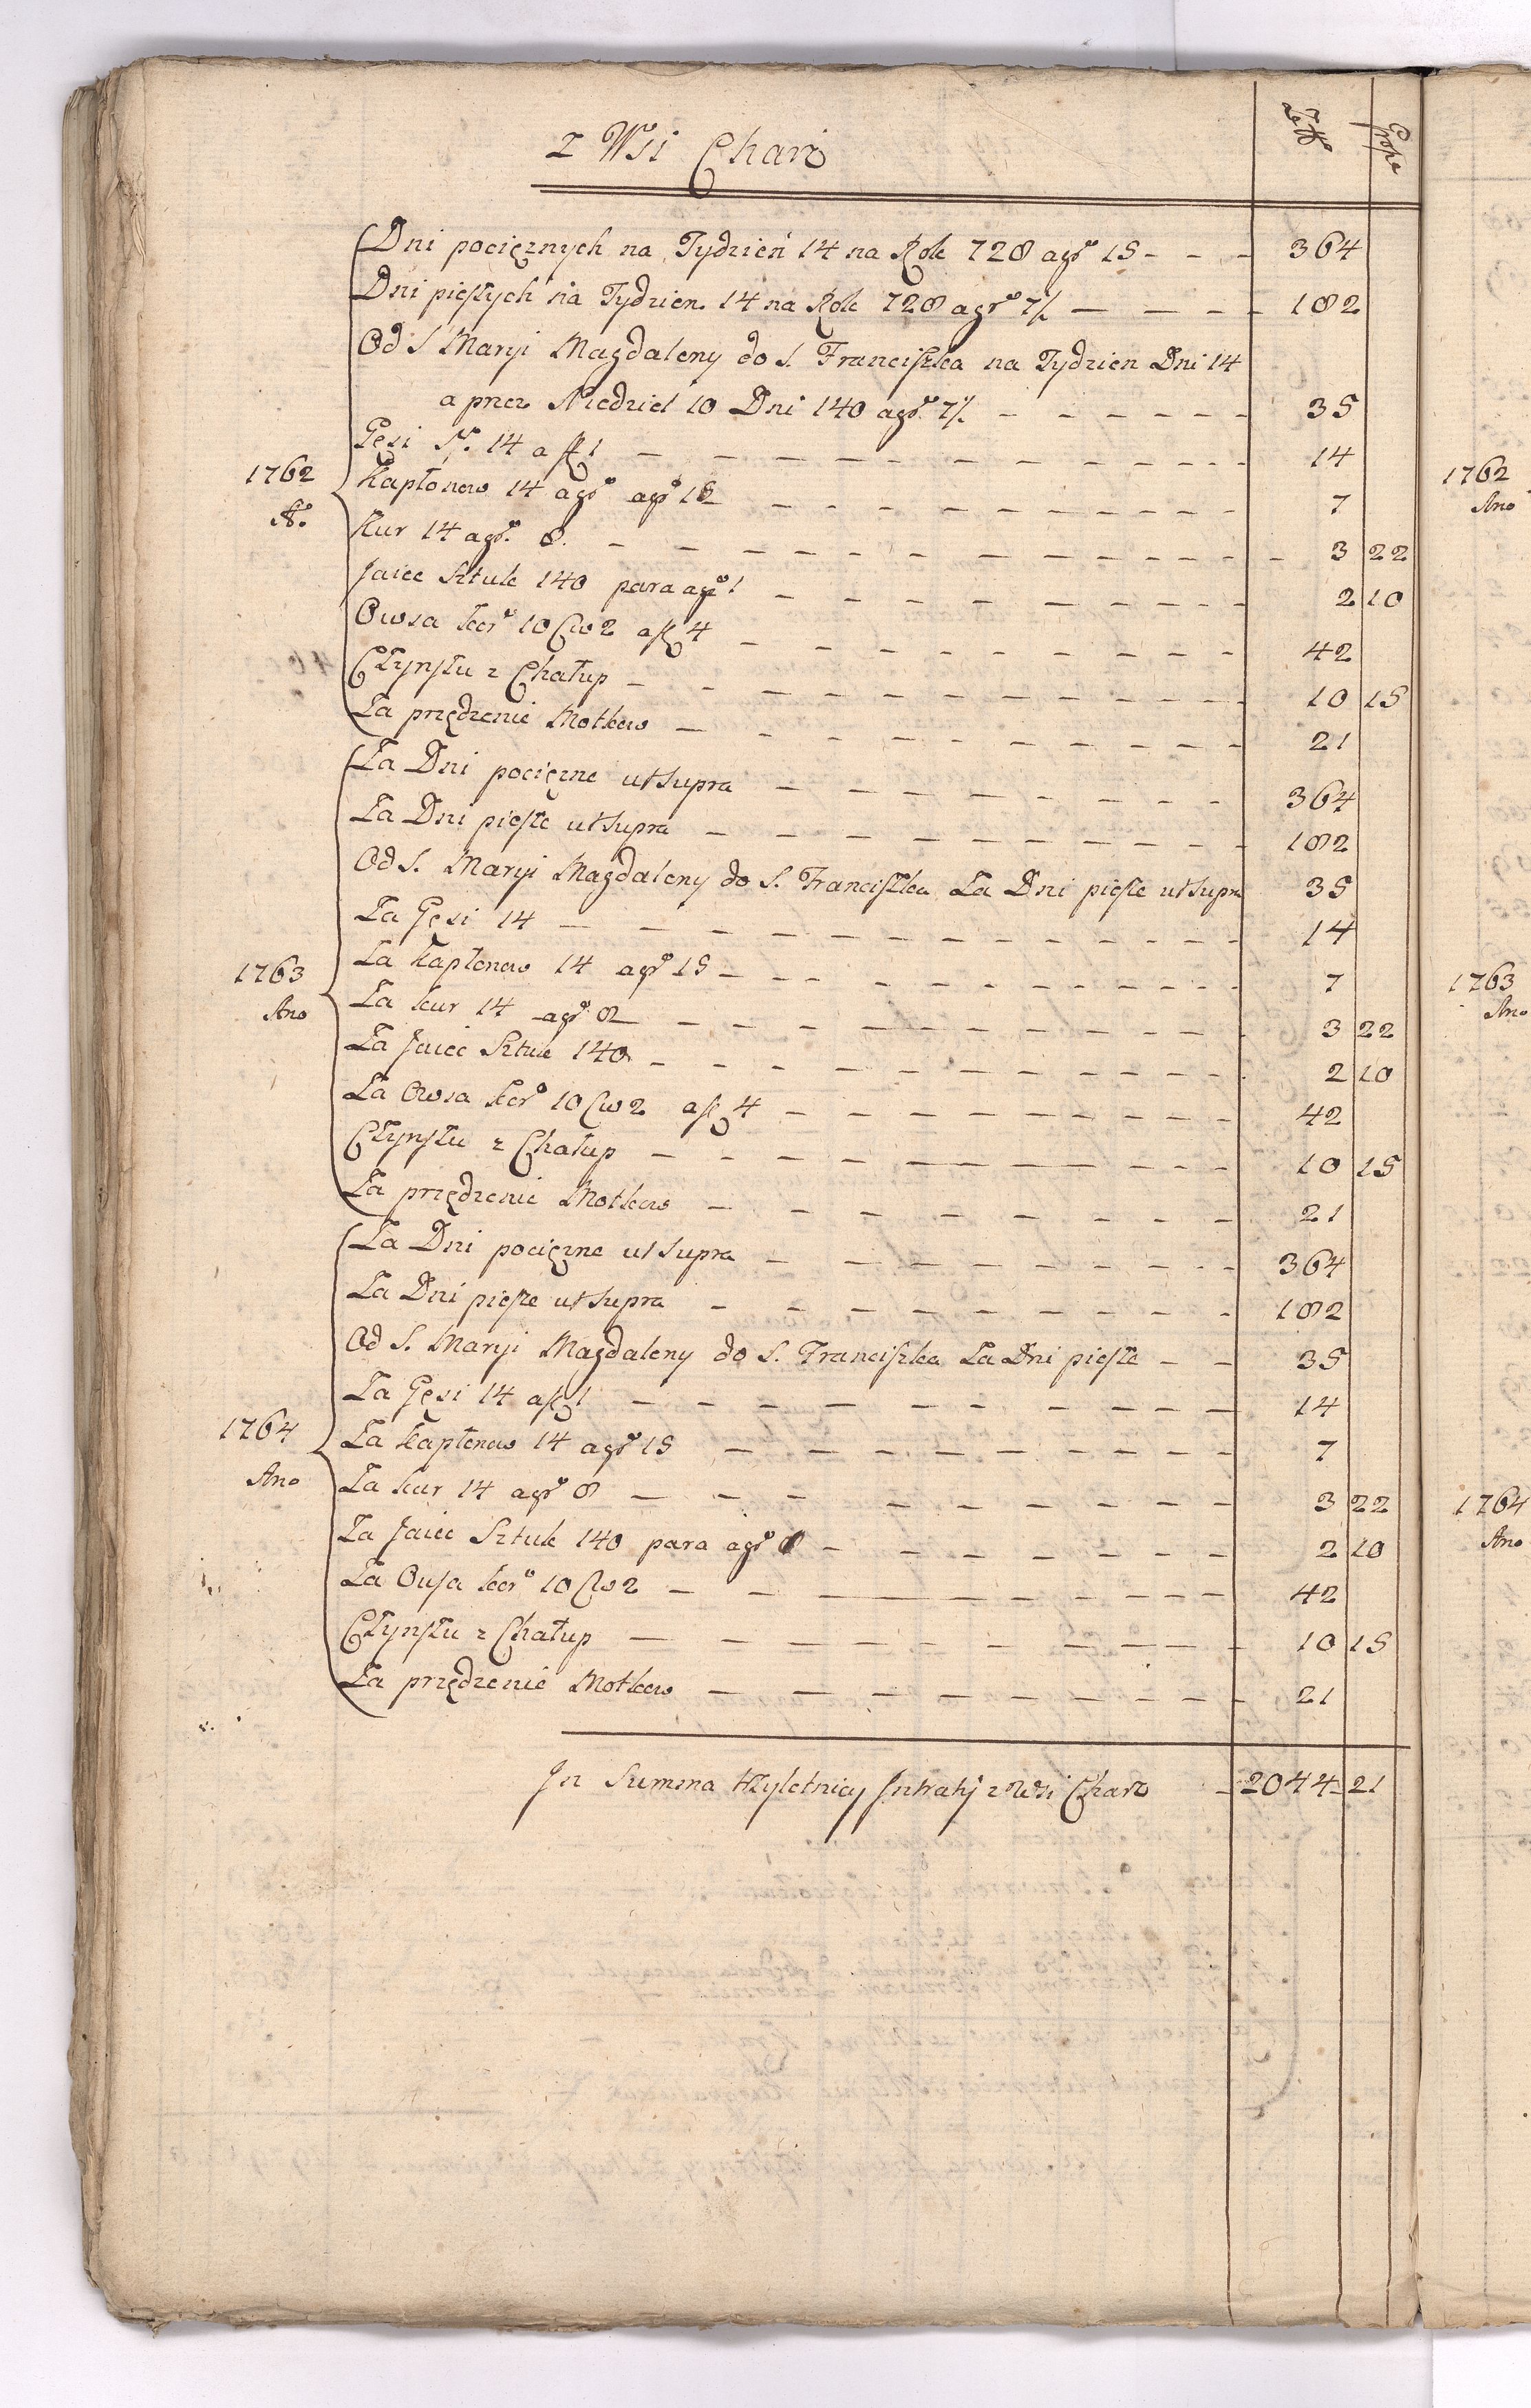 z Wsi Charz
Zł Grosz
Dni pociężnych na Tydzień 14 na Rok 728 a gr 15 - - - 364
Dni pieszych na Tydzien 14 na Rok 728 a gr 7½ - - - 182
Od S Maryi Magdaleny do S. Franciszka na Tydzien Dni 14
a przez Niedziel 10 Dni 140 a gr 7½ - - - 35
Gęsi No 14 a fl 1 - - - 14
1762 Kapłonow 14 agr agr 15 - - - 7
Ao Kur 14 agr. 8. - - - 3 22
Jaiec Sztuk 140 para agr 1 - - - 2 10
Owsa kor 10 Cw 2 a fl 4 - - - 42
Czynszu z Chałup - - - 10 15
Za przędzenie Motkow - - - 21
Za Dni pociężne ut supra - - - 364
Za Dni piesze ut supra - - - 182
Od S. Maryi Magdaleny do S. Franciszka Za Dni piesze ut supra 35
Za Gęsi 14 - - - 14
1763 Za kapłonow 14 agr 15 - - - 7
Ano Za kur 14 agr 8 - - - 3 22
Za Jaiec Sztuk 140 - - - 2 10
Za Owsa kor 10 Cw 2 a fl 4 - - - 42
Czynszu z Chałup - - - 10 15
Za przędzenie Motkow - - - 21
Za Dni pociężne ut supra - - - 364
Za Dni piesze ut supra - - - 182
Od S. Maryi Magdaleny do S. Franciszka Za Dni piesze - - 35
Za Gęsi 14 a fl 1 - - - 14
1764 Za kapłonow 14 agr 15 - - - 7
Ano Za kur 14 agr 8 - - - 3 22
Za Jaiec Sztuk 140 para agr - - - 2 10
Za Owsa kor 10 Cw 2 - - - 42
Czynszu z Chałup - - - 10 15
Za przędzenie Motkow - - - 21
Jn Summa trzyletnicy Jntraty z Wsi Charz - 2044 21
1762
Ano
1763
Ano
1764
Ano